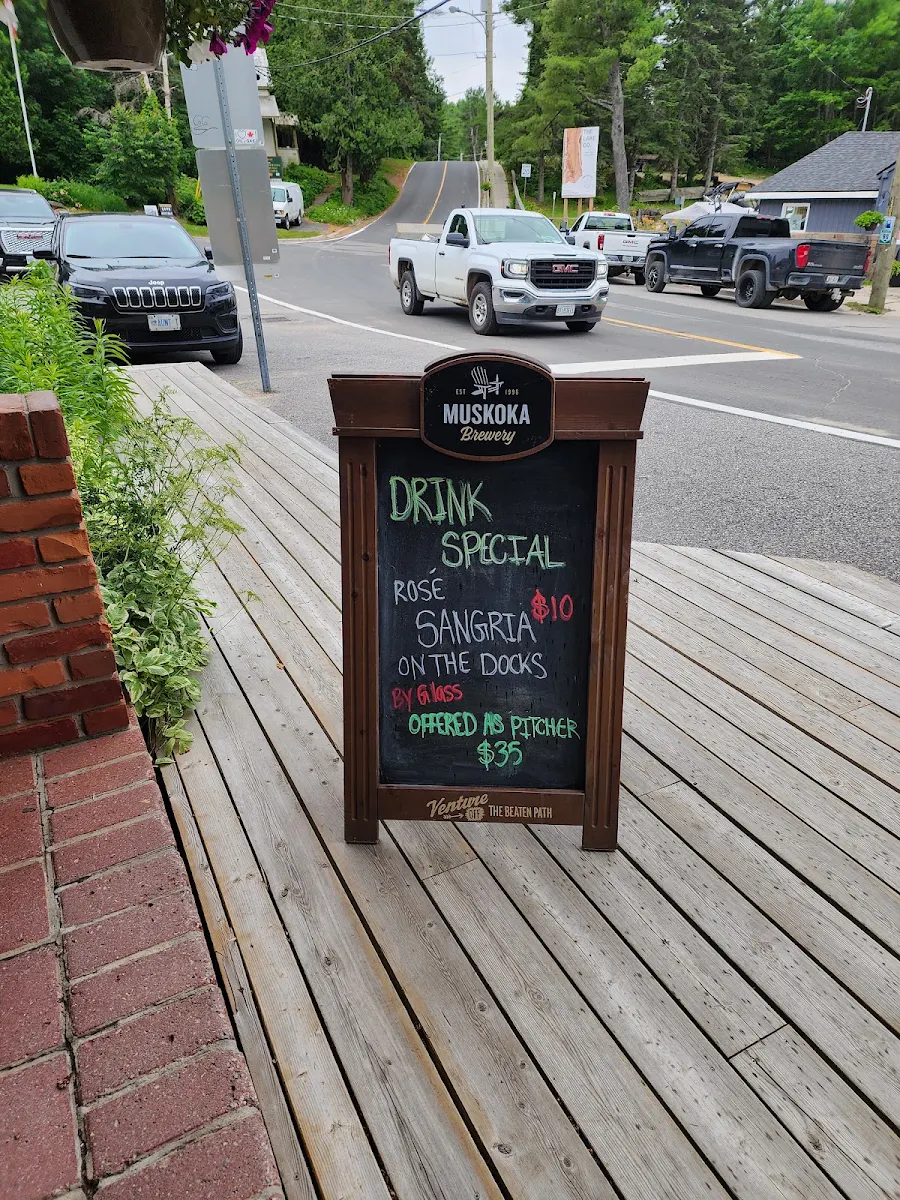 EST 1996
MUSKOKA
Brewery
DRINK
SPECIAL
ROSÉ
$10
SANGRIA
ON THE DOCKS
BY GlASS
OFFERED AS PITCHER
$35
Venture OFF THE BEATEN PATH
Jeep
GMC